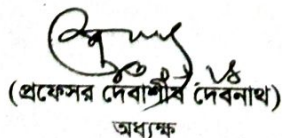 (প্রফেসর দেবাশীষ দেবনাথ)
অধ্যক্ষ